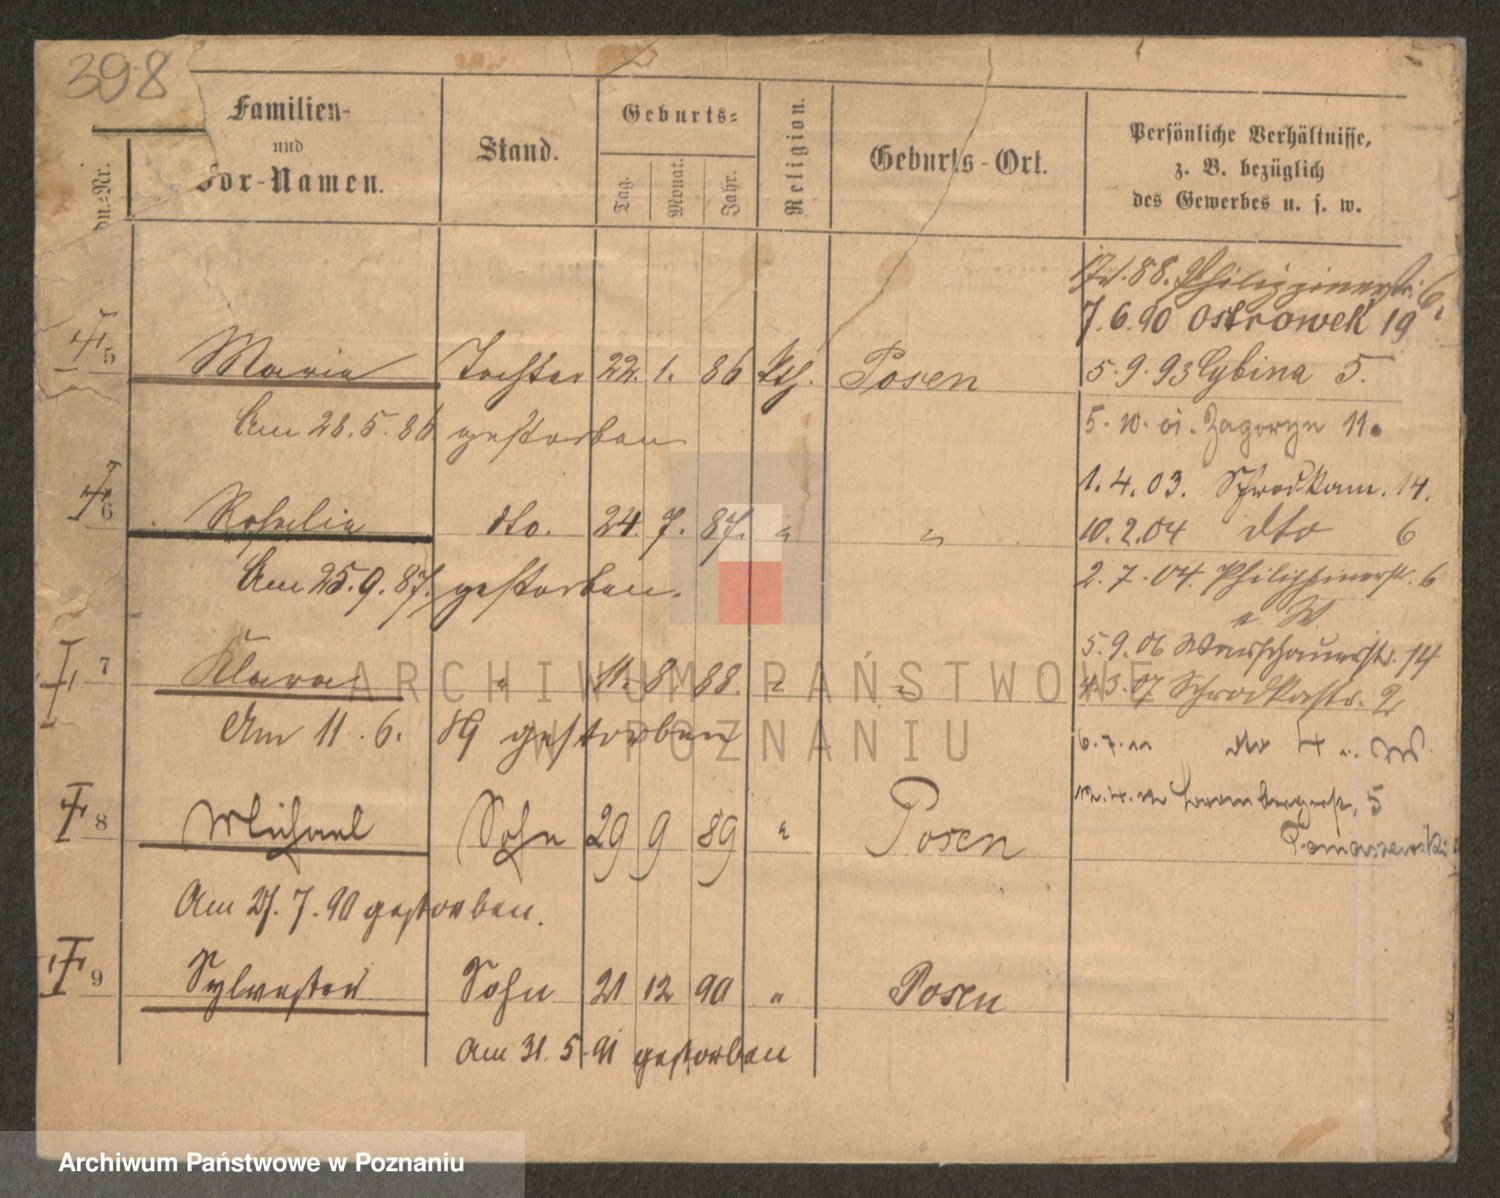 398
Familien-
und
Vor-Namen.
Stand.
Geburts-
Tag.
Monat.
Jahr.
Religion.
Geburts-Ort.
Persönliche Verhältnisse,
z. B. bezüglich
des Gewerbes u. s. w.
17.1.88. Philippinerstr. 6
7.6.90 Ostrowek 19
5 Marie Tochter 22. 1. 86 kth. Posen
5.9.93 Cybina 5.
Am 28.5.86 gestorben
5.10.01. Zagorze 11.
1.4.03. Schrodkam. 14.
6 Rosalie dto. 24. 7. 87. " "
10.2.04 dto 6
Am 25.9.87. gestorben.
2.7.04. Philippinerstr. 6
5.9.06 Warschauerstr. 14
7 Klara " 11. 8. 88. " "
4.3.07 Schrodkastr. 2
Am 11.6.89 gestorben
dto 4
8 Michael Sohn 29 9 89 " Posen
5
Tomaszewski
Am 27.7.90 gestorben.
9 Sylvester Sohn 21 12 90 " Posen
Am 31.5.91 gestorben
ARCHIWUM PAŃSTWOWE
W POZNANIU
Archiwum Państwowe w Poznaniu